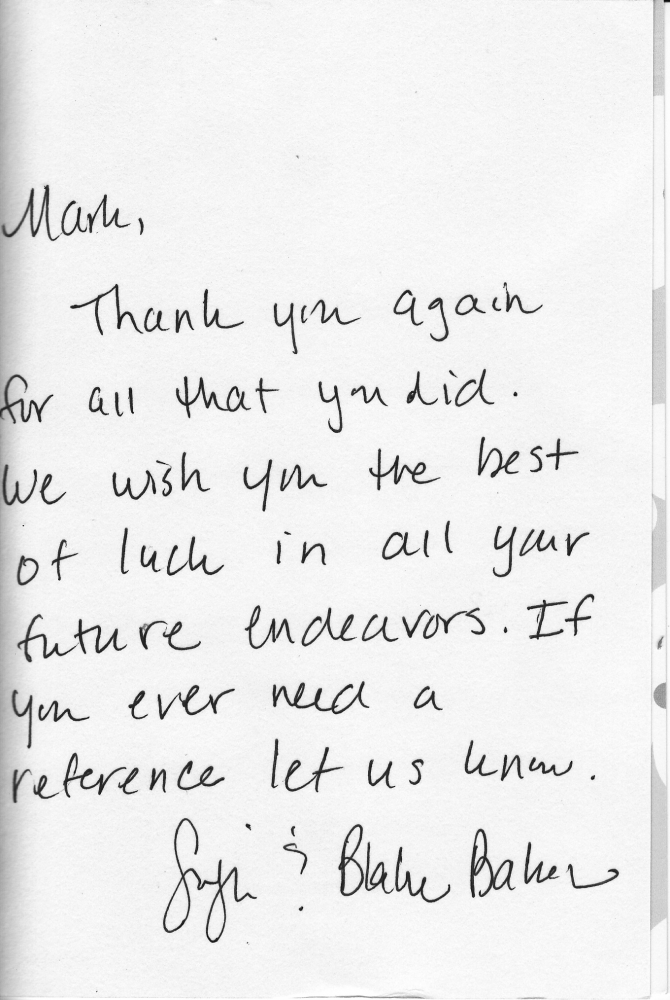 Mark,
Thank you again
for all that you did.
We wish you the best
of luck in all your
future endeavors. If
you ever need a
reference let us know.
& Blake Baker